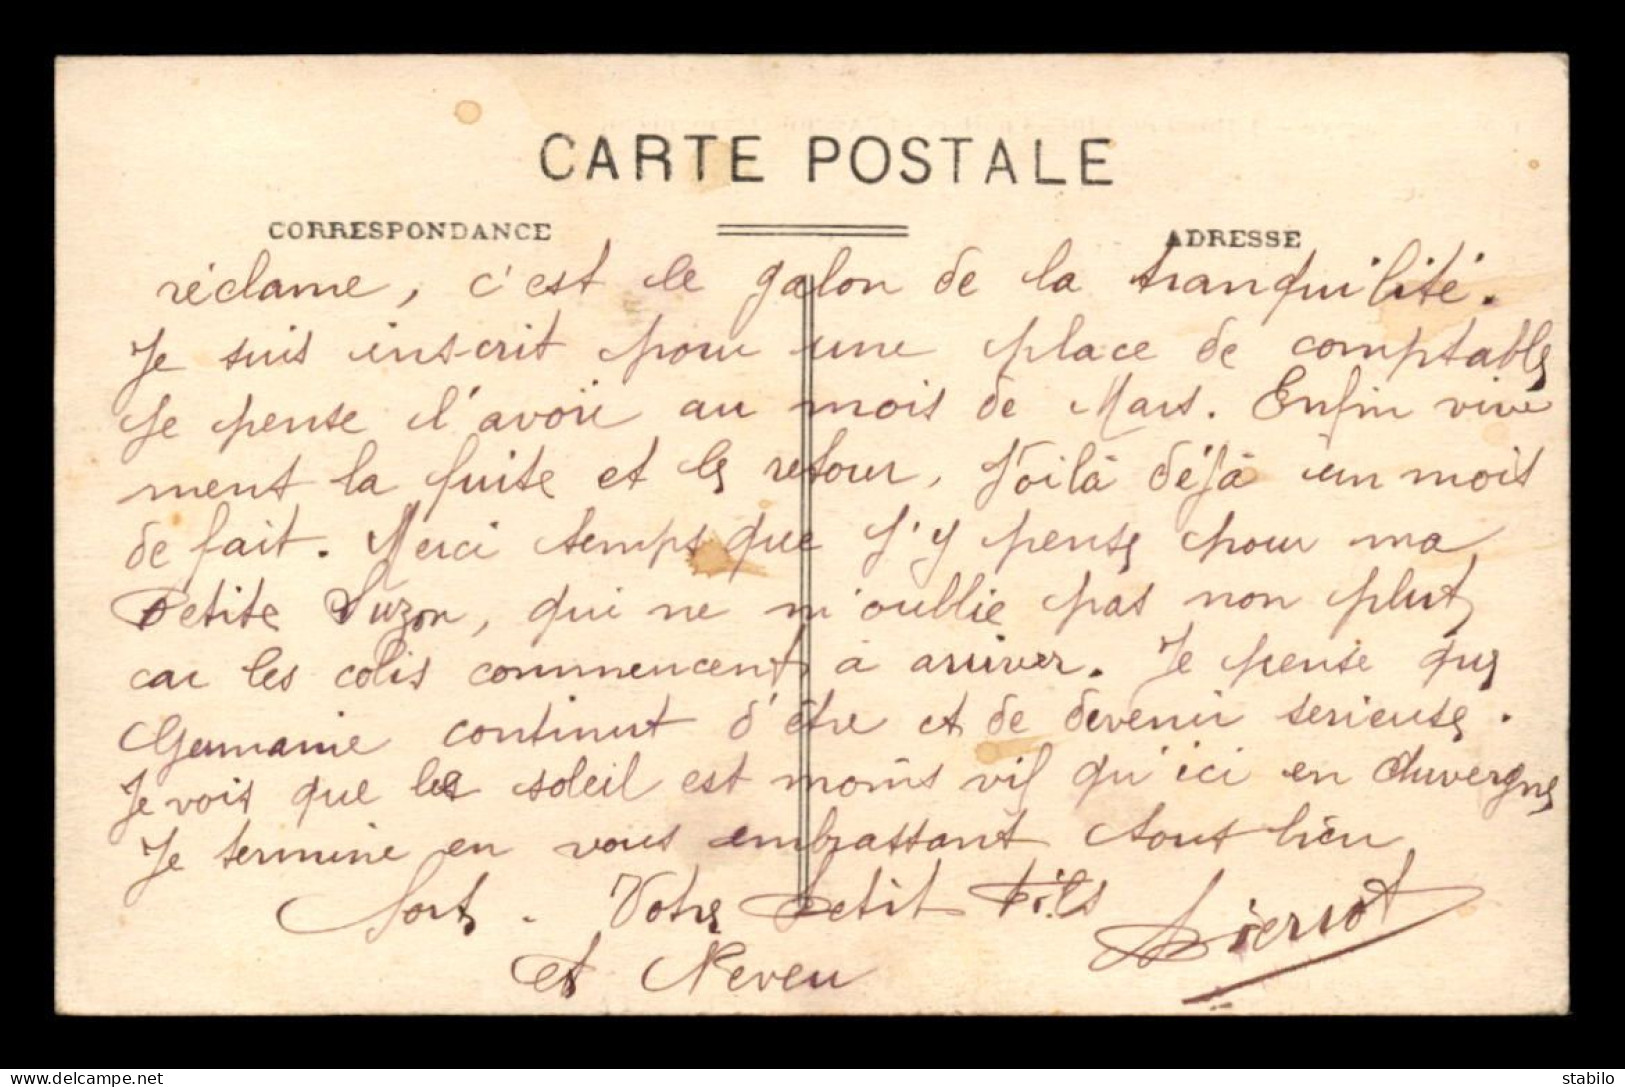 CARTE POSTALE
CORRESPONDANCE
ADRESSE
réclame, c'est le galon de la tranquilité.
Je suis inscrit pour une place de comptable
Je pense l'avoir au mois de Mars. Enfin vive
ment la fuite et le retour. Voilà déjà un mois
de fait. Merci temps que j'y pense pour ma
Petite Suzon, qui ne m'oublie pas non plut,
car les colis commencent à arriver. Je pense que
Germaine continut d'être et de devenir serieuse.
Je vois que le soleil est moins vif qu'ici en Auvergne
Je termine en vous embrassant tout bien
fort. Votre Petit Fils
et Neveu
Pierrot
stabilo